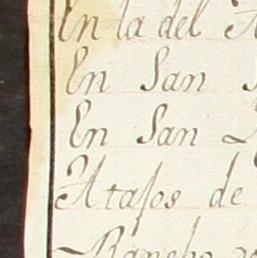 En la del
En San
En San
Atajos de
Rancho